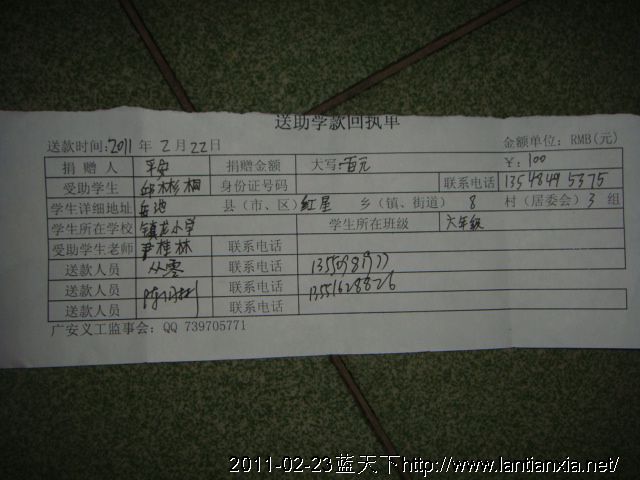 送助学款回执单
送款时间:2011 年 2 月 22 日 金额单位: RMB(元)
捐赠人 平安 捐赠金额 大写: 百元 ¥: 100
受助学生 邱彬桐 身份证号码 联系电话 13548495375
学生详细地址 岳池 县(市、区) 红星 乡(镇、街道) 8 村(居委会) 3 组
学生所在学校 镇龙小学 学生所在班级 六年级
受助学生老师 尹桂林 联系电话
送款人员 从零 联系电话
送款人员 联系电话 13551628826
送款人员 联系电话
广安义工监事会: QQ 739705771
2011-02-23蓝天下http://www.lantianxia.net/